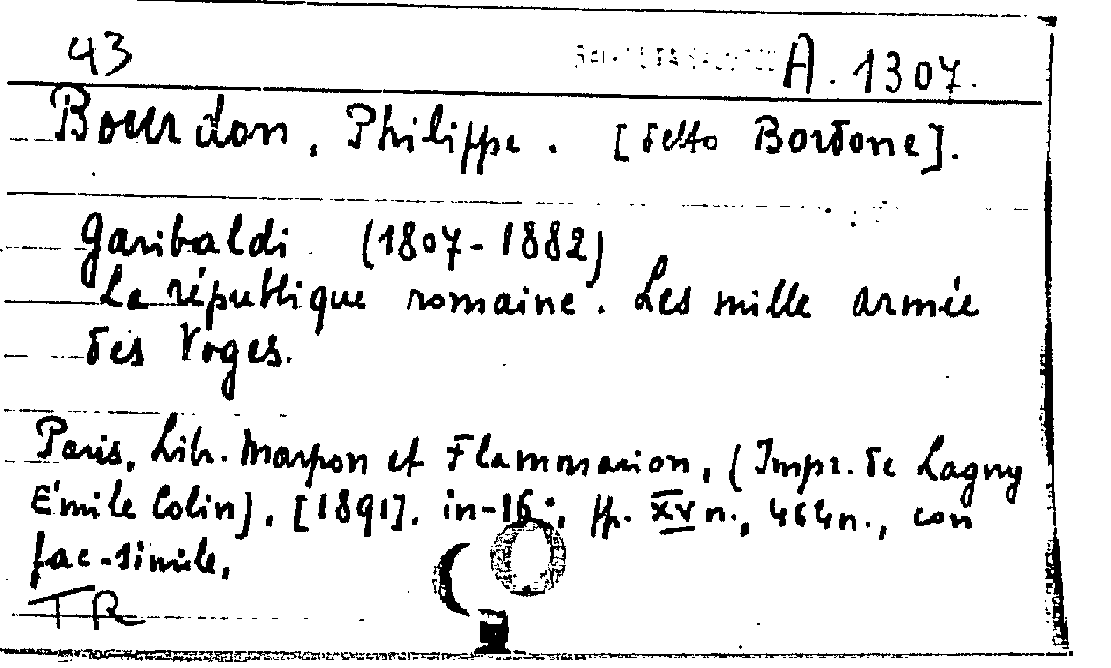 43 A. 1307.
Bourdon, Philippe. [detto Bordone].
Garibaldi (1807-1882)
La république romaine. Les mille armée
des Voges.
Paris, Libr. Marpon et Flammarion, (Impr. de Lagny
Émile Colin), [1891], in-16°, pp. XV n., 464 n., con
fac-simile.
TR